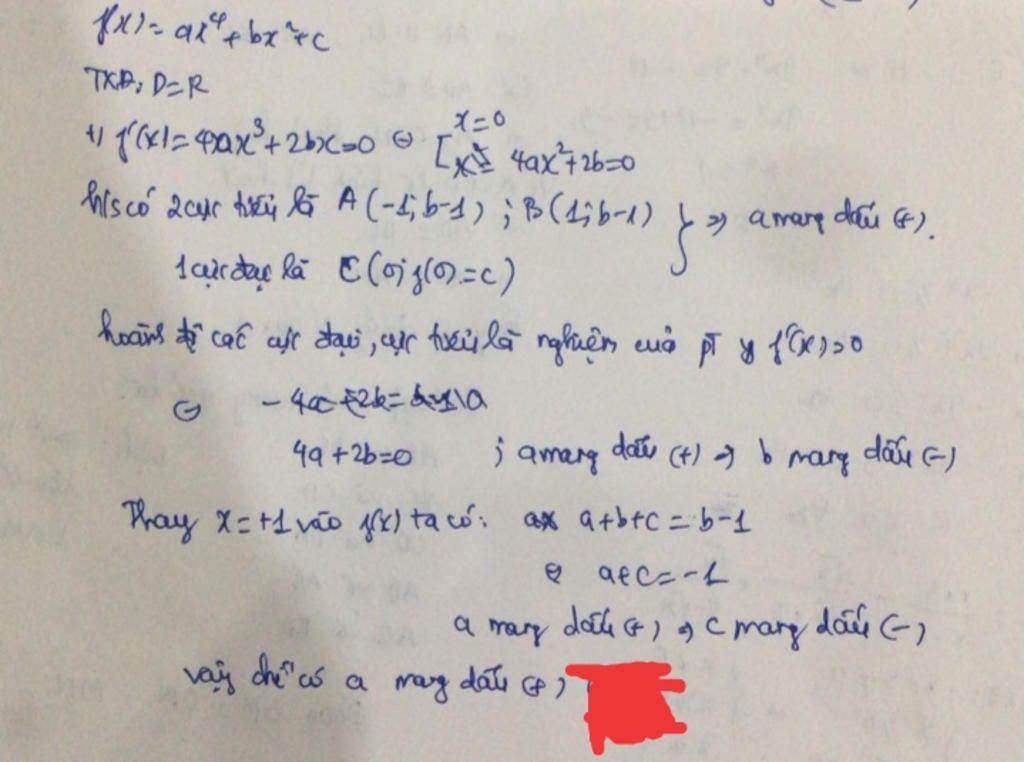 f(x) = ax⁴ + bx² + c
TXĐ: D=R
+) f'(x) = 4ax³ + 2bx = 0 ⇔ [ x=0
4ax² + 2b = 0
h/s có 2 cực tiểu là A(-1; b-1) ; B(1; b-1) } ⇒ a mang dấu (+).
1 cực đại là C(0; f(0) = c)
hoành độ các cực đại, cực tiểu là nghiệm của pt f'(x) = 0
⇔
4a + 2b = 0 ; a mang dấu (+) → b mang dấu (-)
Thay x = +1 vào f(x) ta có: a+b+c = b-1
⇔ a+c = -1
a mang dấu (+) → c mang dấu (-)
vậy chỉ có a mang dấu (+)